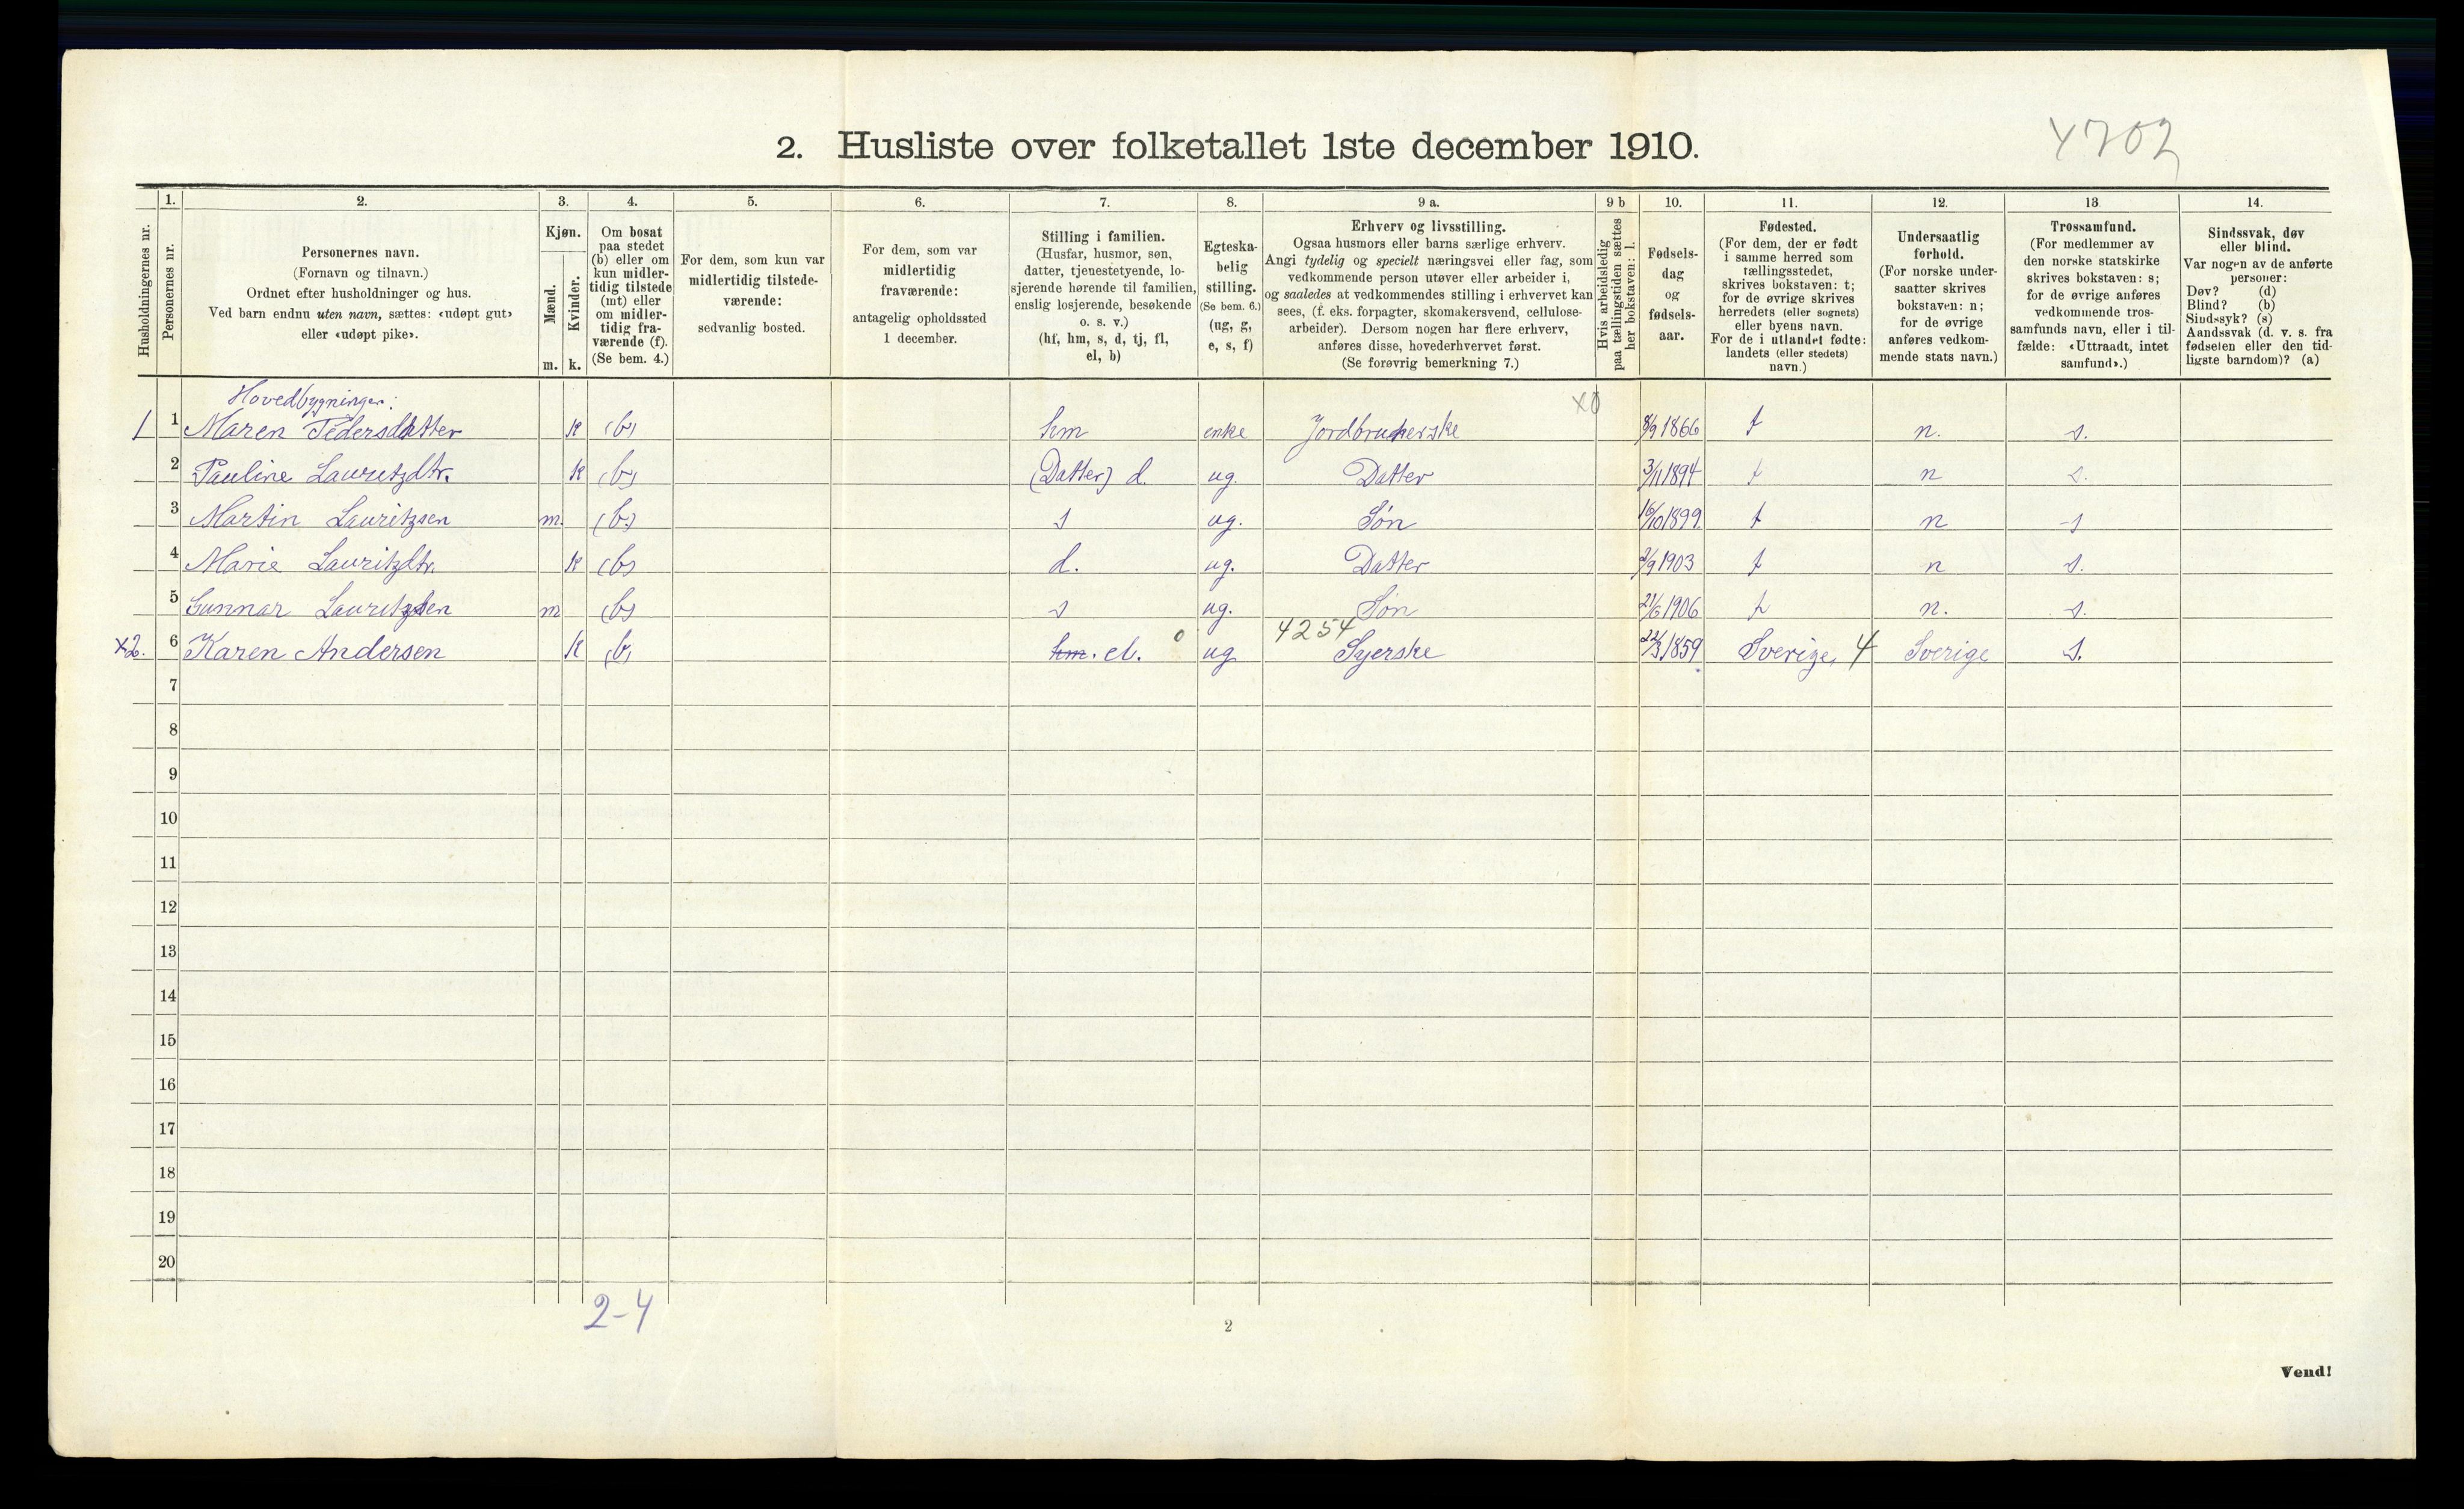 4702
2. Husliste over folketallet 1ste december 1910.
Husholdningernes nr.
1.
Personernes nr.
2.
Personernes navn.
(Fornavn og tilnavn.)
Ordnet efter husholdninger og hus.
Ved barn endnu uten navn, sættes: «udøpt gut»
eller «udøpt pike».
3.
Kjøn.
Mænd.
Kvinder.
m. k.
4.
Om bosat
paa stedet
(b) eller om
kun midler-
tidig tilstede
(mt) eller
om midler-
tidig fra-
værende (f).
(Se bem. 4.)
5.
For dem, som kun var
midlertidig tilstede-
værende:
sedvanlig bosted.
6.
For dem, som var
midlertidig
fraværende:
antagelig opholdssted
1 december.
7.
Stilling i familien.
(Husfar, husmor, søn,
datter, tjenestetyende, lo-
sjerende hørende til familien,
enslig losjerende, besøkende
o. s. v.)
(hf, hm, s, d, tj, fl,
el, b)
8.
Egteska-
belig
stilling.
(Se bem. 6.)
(ug, g,
e, s, f)
9 a.
Erhverv og livsstilling.
Ogsaa husmors eller barns særlige erhverv.
Angi tydelig og specielt næringsvei eller fag, som
vedkommende person utøver eller arbeider i,
og saaledes at vedkommendes stilling i erhvervet kan
sees, (f. eks. forpagter, skomakersvend, cellulose-
arbeider). Dersom nogen har flere erhverv,
anføres disse, hovederhvervet først.
(Se forøvrig bemerkning 7.)
9 b
Hvis arbeidsledig
paa tællingstiden sættes
her bokstaven: l.
10.
Fødsels-
dag
og
fødsels-
aar.
11.
Fødested.
(For dem, der er født
i samme herred som
tællingsstedet,
skrives bokstaven: t;
for de øvrige skrives
herredets (eller sognets)
eller byens navn.
For de i utlandet fødte:
landets (eller stedets)
navn.)
12.
Undersaatlig
forhold.
(For norske under-
saatter skrives
bokstaven: n;
for de øvrige
anføres vedkom-
mende stats navn.)
13
Trossamfund.
(For medlemmer av
den norske statskirke
skrives bokstaven: s;
for de øvrige anføres
vedkommende tros-
samfunds navn, eller i til-
fælde: «Uttraadt, intet
samfund».)
14.
Sindssvak, døv
eller blind.
Var nogen av de anførte
personer:
Døv? (d)
Blind? (b)
Sindssyk? (s)
Aandssvak (d. v. s. fra
fødselen eller den tid-
ligste barndom)? (a)
Hovedbygningen:
1 1 Maren Pedersdatter k (b) hm enke Jordbrukerske x0 8/9 1866 t n. s.
2 Pauline Lauritzdtr. k (b) (Datter) d. ug. Datter 3/11 1894 t n s.
3 Martin Lauritzsen m. (b.) s ug. Søn 16/10 1899 t n s
4 Marie Lauritzdtr. k (b) d. ug. Datter 2/9 1903 t n s.
5 Gunnar Lauritzsen m (b) s ug. Søn 21/6 1906 t n. s.
4254
x2. 6 Karen Andersen k (b) hm. el. 0 ug Syerske 22/3 1859 Sverige, 4 Sverige s.
7
8
9
10
11
12
13
14
15
16
17
18
19
20
2-4
2
Vend!